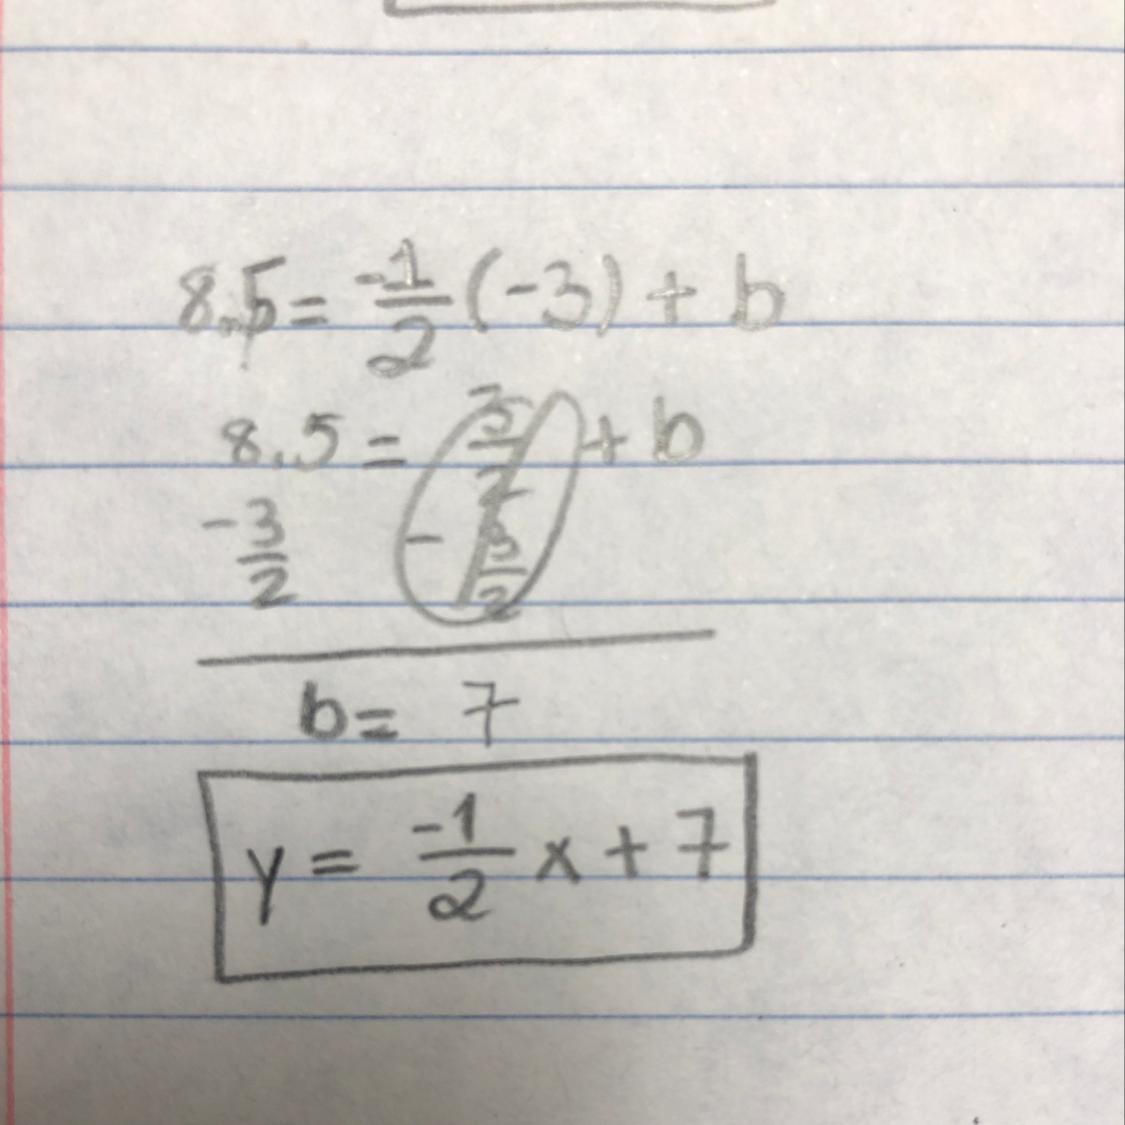 8.5 = -1/2 (-3) + b
8.5 = 3/2 + b
-3/2 - 3/2
b = 7
y = -1/2 x + 7